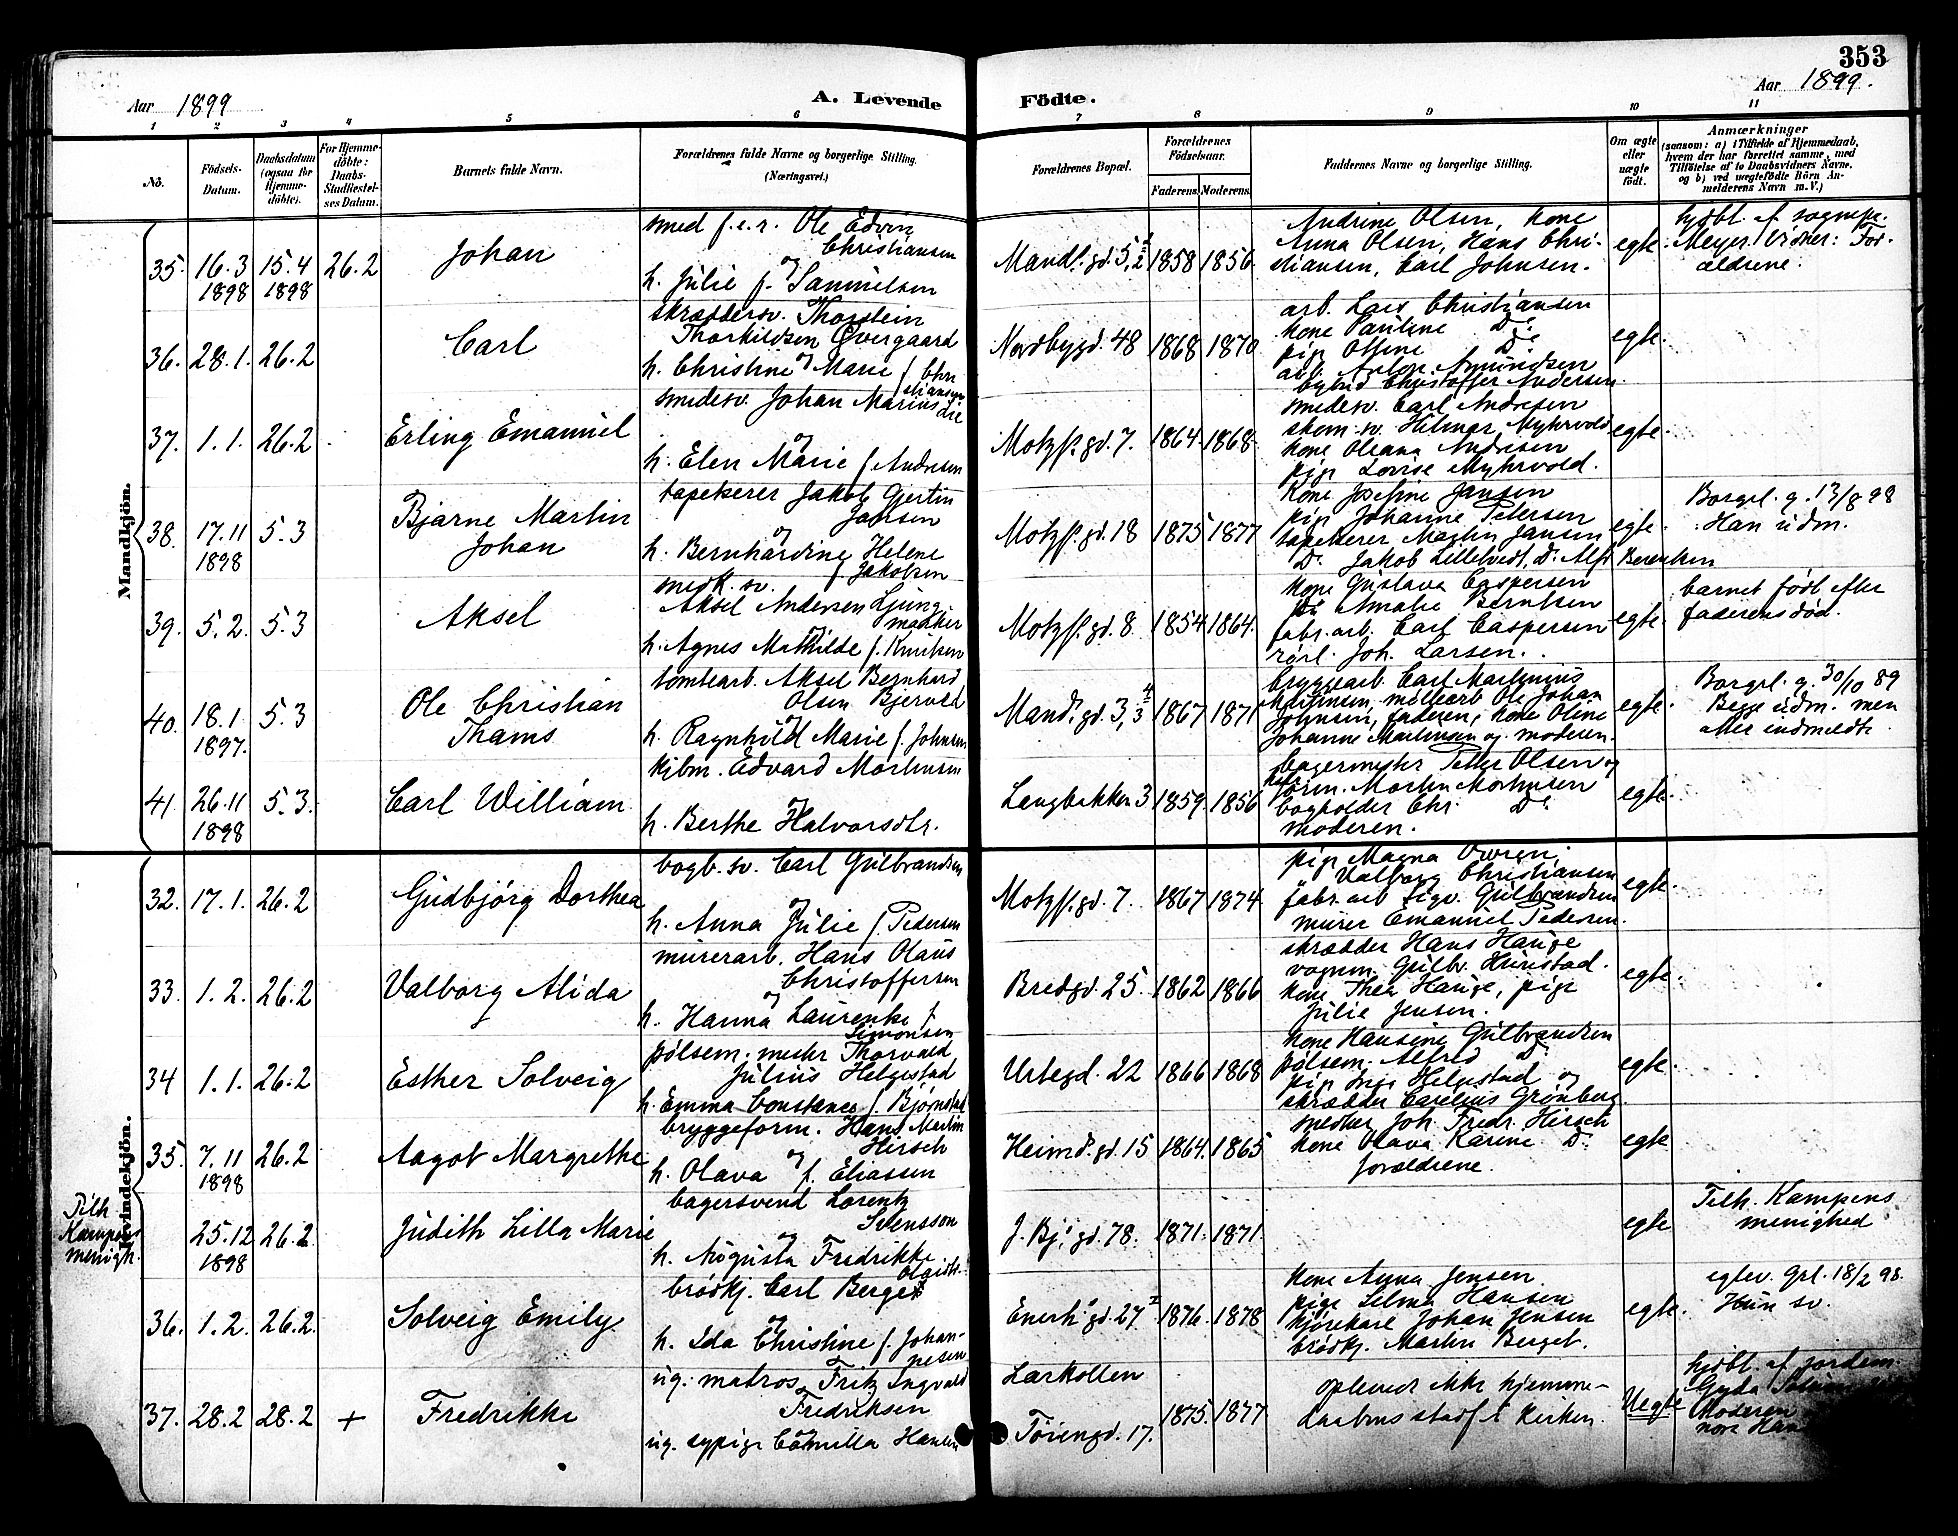 353
Aar 1899
A. Levende
Födte.
Aar 1899.
1 2 3 4 5 6 7 8 9 10 11
No.
Födsels-Datum.
Daabsdatum (ogsaa for Hjemme-döbte).
For Hjemme-döbte: Daabs-Stadfæstel-ses Datum.
Barnets fulde Navn.
Forældrenes fulde Navne og borgerlige Stilling. (Næringsvei.)
Forældrenes Bopæl.
Forældrenes Födselsaar.
Faderens. Moderens.
Faddernes Navne og borgerlige Stilling.
Om ægte eller uægte født.
Anmærkninger
(saasom: a) i Tilfælde af Hjemmedaab, hvem der har forrettet samme, med Tilføielse af to Daabsvidners Navne. og b) ved uægtefödte Börn An-melderens Navn m. V.)
Mandkjön.
35. 16.3 1898 15.4 1898 26.2
Johan
smed f.e.r. Ole Edvin
Christiansen
og
h. Julie f. Samuelsen
Mandl.gd. 5, 1/2 1858 1856
Andrine Olsen, kone
Anna Olsen, Hans Chri-
stiansen, Carl Johnsen.
egte.
hjdbt. af sognepr.
Meyer. Vidner: For-
ældrene.
36. 28.1. 26.2
Carl
skræddersv. Thorstein
Thorkildsen Øvergaard
og
h. Christine Marie f. Chri
stiansen
Nordbygd. 48 1868 1870
arb. Lars Christiansen
kone Pauline Do
pige Oline Do
arb. Anton Amundsen
bybud Christoffer Andersen.
egte.
37. 1.1. 26.2
Erling Emanuel
smedesv. Johan Marius
og
h. Elen Marie f. Andresen
Motzf.gd. 7. 1864 1868
smedesv. Carl Andresen
skom. sv. Hilmar Myhrvold
kone Oleana Andresen
pige Lovise Myhrvold.
egte.
38. 17.11 1898 5.3
Bjarne Martin
Johan
tapetserer Jakob Gjertin
Jansen
og
h. Bernhardine Helene
f. Jakobsen
Motzf.gd. 18 1875 1877
kone Josefine Jansen
pige Johanne Petersen
tapetserer Martin Jansen
Do Jakob Lilletvedt, Do Alf. Berentsen
egte.
Borgel. g. 13/8 98
Han udm.
39. 5.2. 5.3
Aksel
snedk. sv.
Aksel Andersen Ljung-
macher
og
h. Agnes Mathilde f. Knutsen
Motzf.gd. 8. 1854 1864.
kone Gustava Caspersen
Do Amalie Berntsen
fabr.arb. Carl Caspersen
rørl. Joh. Larsen.
egte.
barnet født efter
faderens død.
40. 18.1 1897. 5.3
Ole Christian
Thams
tomtearb. Aksel Bernhard
Olsen Bjerved
og
h. Ragnhild Marie f. Johnsen
Mandl.gd. 3, 4/3 1867 1871
bryggearb. Carl Martinius
Martinsen, møllearb Ole Johan
Johnsen, faderen, kone Oline
Johanne Martinsen og moderen.
egte.
Borgel. g. 30/10 89
Begge udm. men
atter indmeldt
41. 26.11 1898 5.3.
Carl William
kjbm. Edvard Mortensen
og
h. Berthe Halvorsdtr.
Langbakken 3 1859. 1856
bagermester Petter Olsen og
form. Morten Mortensen
bogholder Chr. Do
moderen.
egte.
Kvindekjön.
32. 17.1. 26.2
Gudbjörg Dorthea
bogb. sv. Carl Gulbrandsen
og
h. Anna Julie f. Pedersen
Motzf.gd. 7. 1867 1874
pige Magna Owren,
Valborg Christiansen
fabr. arb Sigv. Gulbrandsen
murer Emanuel Pedersen.
egte.
33. 1.2. 26.2
Valborg Alida
murerarb. Hans Olaus
Christoffersen
og
h. Hanna Laurentze f.
Simonsen
Bredgd. 25. 1862 1866
skrædder Hans Hauge
vognm. Gulbr. Hunstad.
kone Thea Hauge, pige
Julie Jensen.
egte.
34 1.1. 26.2
Esther Solveig
pølsem. mester Thorvald
Julius Helgestad
h. Emma Constance f. Bjørnstad
Urtegd. 22 1866 1868
kone Hansine Gulbrandsen
pølsem. Alfred Do
pige Inga Helgestad og
skrædder Carelius Grönberg.
egte.
35. 7.11 1898 26.2
Aagot Margrethe
bryggeform. Hans Martin
Hirsch
og
h. Olava f. Eliassen
Heimd.gd. 15 1864. 1865
snedker Joh. Fredr. Hirsch
kone Olava Karine Do
forældrene.
egte
Tilh.
Kampens
menigh.
25.12 1898 26.2
Judith Lilla Marie
bagersvend Lorentz
Svensson
og
h. Augusta Fredrikke
J. Bj. gd. 78. 1871. 1871.
egte
Tilh. Kampens
menighed
36. 1.2. 26.2.
Solveig Emily
brödkj. Carl Berget
og
h. Ida Christine f. Johan-
nesen
Enerh.gd. 27 1876. 1878
kone Anna Jensen
pige Selma Hansen
kjørekarl Johan Jensen
brödkj. Martin Berget.
egte.
egtev. Grl. 18/2 98.
Hun sv.
37. 28.2 28.2 +
Fredrikke
ug. matros Fritz Ingvald
Fredriksen
ug. sypige Camilla Hansen
Larkollen
Töiengd. 17. 1875. 1877
oplevede ikke hjemme-
daabens stadf. i kirken.
Uegte
hjdbt. af jordem.
Gyda
Moderen